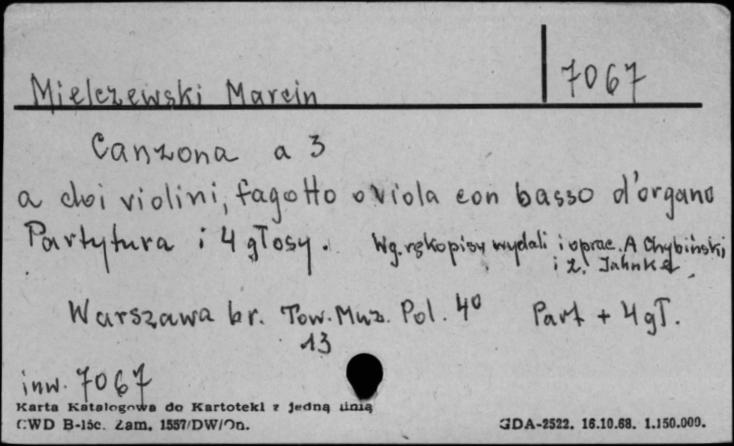 Mielczewski Marcin
7067
Canzona a 3
a doi violini, fagotto o viola con basso d'organo
Partytura i 4 głosy. Wg. rękopisu wydali i oprac. A Chybiński
i Z. Jahnke
Warszawa br. Tow. Muz. Pol. 4⁰ Part + 4 gł.
13
inw. 7067
Karta Katalogowa do Kartoteki z jedną linią
CWD B-15c. Zam. 1557/DW/On.
GDA-2522. 16.10.68. 1.150.000.